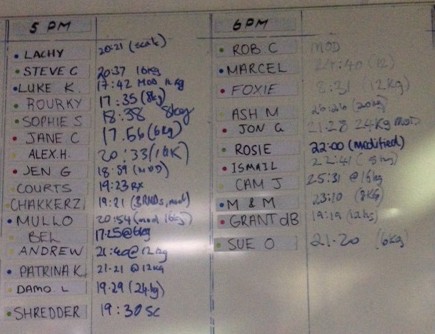 5 PM
LACHY 20:21 (scale)
STEVE C 20:37 16kg
LUKE K. 17:42 MOD
ROURKY 17:35 (8kg)
SOPHIE S 18:38 8kg
JANE C 17.56 (6kg)
ALEX H. 20:33
JEN G 18:59 (MOD)
COURTS 19:23 RX
CHAKKERZ 19:21
MULLO 20:54 (mod 16kg)
BEL 17:25@6kg
ANDREW 21:40@12kg
PATRINA K 21:21 @12kg
DAMO. L 19:29 (24kg)
SHREDDER 19:30 SC
6 PM
ROB C MOD
MARCEL
FOXIE (12kg)
ASH M (20kg)
JON G 21:28 24kg MOD
ROSIE 22:00 (modified)
ISMAIL
CAM J 25:31 @16kg
M & M 23:10 (8KG)
GRANT dB 19:19
SUE O 21:20 (6kg)